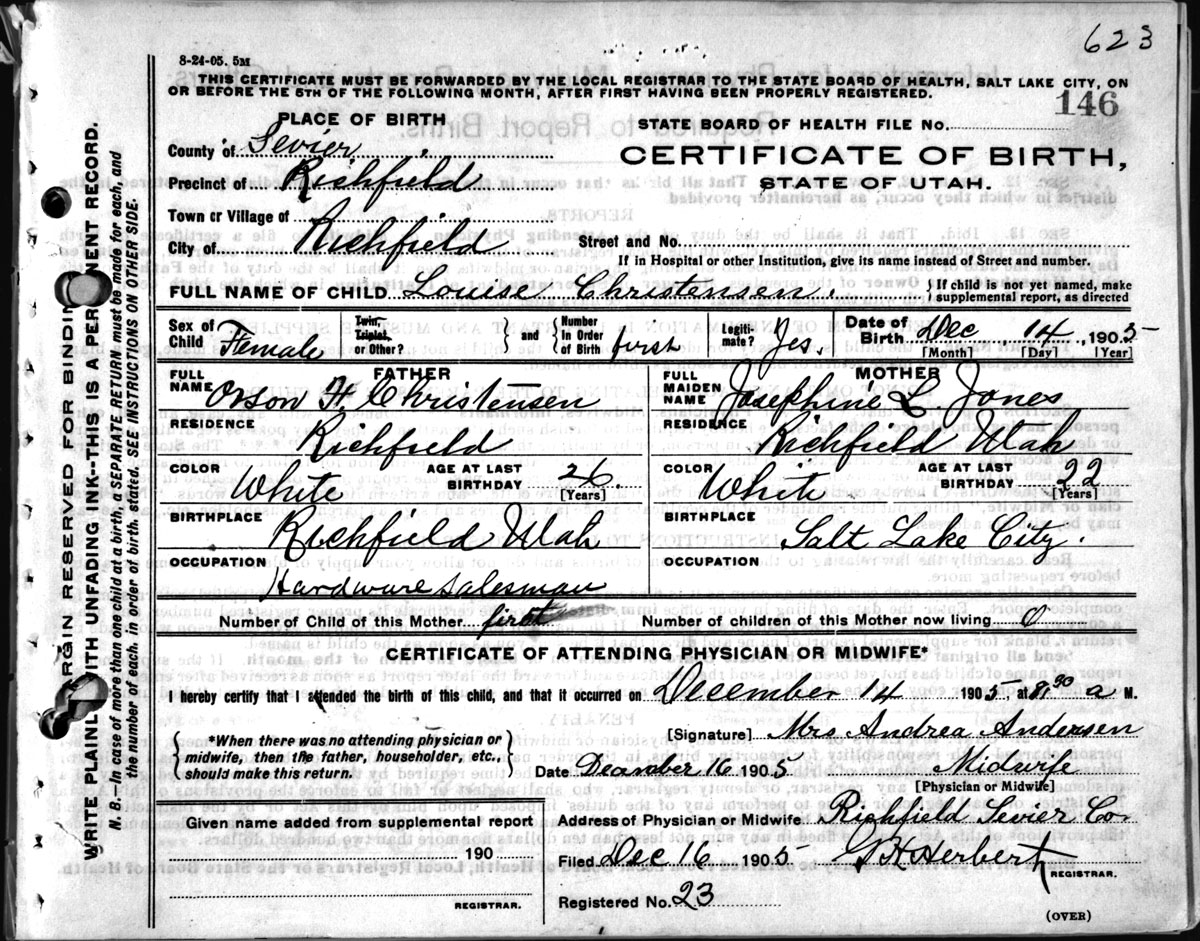 623
8-24-05. 5M
THIS CERTIFICATE MUST BE FORWARDED BY THE LOCAL REGISTRAR TO THE STATE BOARD OF HEALTH, SALT LAKE CITY, ON
OR BEFORE THE 5TH OF THE FOLLOWING MONTH, AFTER FIRST HAVING BEEN PROPERLY REGISTERED.
146
PLACE OF BIRTH
STATE BOARD OF HEALTH FILE No.
County of Sevier
CERTIFICATE OF BIRTH,
Precinct of Richfield
STATE OF UTAH.
Town or Village of
City of Richfield
Street and No.
If in Hospital or other Institution, give its name instead of Street and number.
FULL NAME OF CHILD Louise Christensen.
} If child is not yet named, make
supplemental report, as directed
Sex of Child Female
Twin, Triplet, or Other?
} and {
Number In Order of Birth first
Legitimate? Yes.
Date of Birth Dec, 14, 1905
[Month] [Day] [Year]
FATHER
MOTHER
FULL NAME Orson H Christensen
FULL MAIDEN NAME Josephine L. Jones
RESIDENCE Richfield
RESIDENCE Richfield Utah
COLOR White
AGE AT LAST BIRTHDAY 26.
[Years]
COLOR White
AGE AT LAST BIRTHDAY 22
[Years]
BIRTHPLACE Richfield Utah
BIRTHPLACE Salt Lake City.
OCCUPATION Hardware salesman
OCCUPATION
Number of Child of this Mother first
Number of children of this Mother now living 0
CERTIFICATE OF ATTENDING PHYSICIAN OR MIDWIFE*
I hereby certify that I attended the birth of this child, and that it occurred on December 14 1905, at 8:30 a M.
{ *When there was no attending physician or
midwife, then the father, householder, etc.,
should make this return. }
[Signature] Mrs Andrea Andersen
Date December 16 1905
Midwife
[Physician or Midwife]
Given name added from supplemental report
190
REGISTRAR.
Address of Physician or Midwife Richfield Sevier Co.
Filed Dec 16 1905
G H Herbert
REGISTRAR.
Registered No. 23
(OVER)
ARGIN RESERVED FOR BINDIN
WRITE PLAINLY WITH UNFADING INK--THIS IS A PERMENENT RECORD.
N. B.--In case of more than one child at a birth, a SEPARATE RETURN must be made for each, and
the number of each, in order of birth, stated. SEE INSTRUCTIONS ON OTHER SIDE.